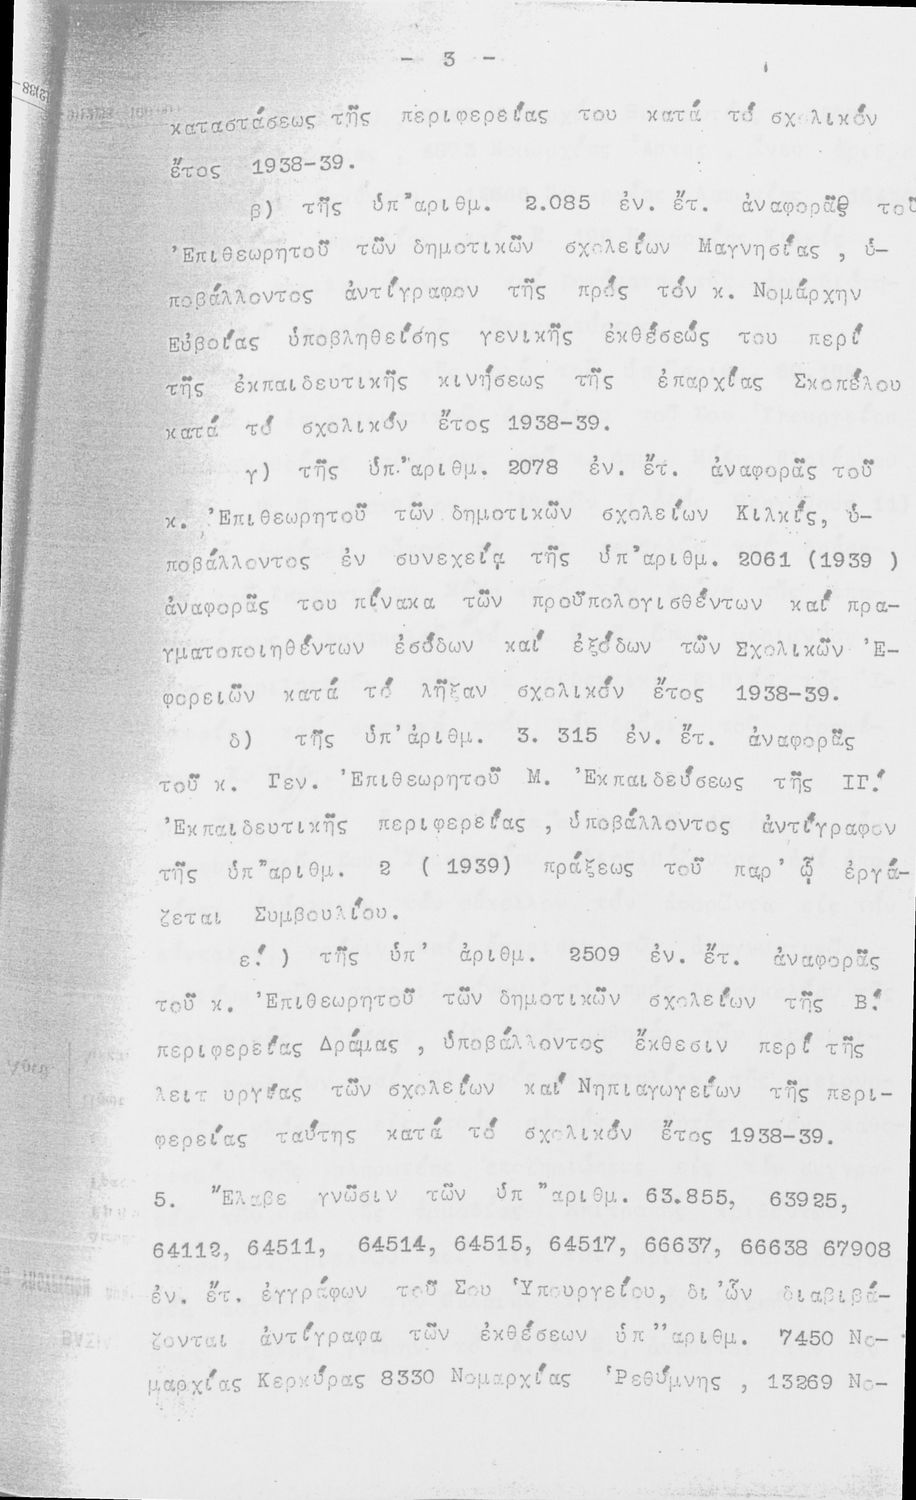 - 3 -
καταστάσεως τῆς περιφερείας του κατά τό σχολικόν
ἔτος 1938-39.
β) τῆς ὑπ'ἀριθμ. 2.085 ἐν. ἔτ. ἀναφορᾶς τοῦ
Ἐπιθεωρητοῦ τῶν δημοτικῶν σχολείων Μαγνησίας , ὑ-
ποβάλλοντος ἀντίγραφον τῆς πρός τόν κ. Νομάρχην
Εὐβοίας ὑποβληθείσης γενικῆς ἐκθέσεώς του περί
τῆς ἐκπαιδευτικῆς κινήσεως τῆς ἐπαρχίας Σκοπέλου
κατά τό σχολικόν ἔτος 1938-39.
γ) τῆς ὑπ'ἀριθμ. 2078 ἐν. ἔτ. ἀναφορᾶς τοῦ
κ. Ἐπιθεωρητοῦ τῶν δημοτικῶν σχολείων Κιλκίς, ὑ-
ποβάλλοντος ἐν συνεχείᾳ τῆς ὑπ'ἀριθμ. 2061 (1939 )
ἀναφορᾶς του πίνακα τῶν προϋπολογισθέντων καί πρα-
γματοποιηθέντων ἐσόδων καί ἐξόδων τῶν Σχολικῶν Ἐ-
φορειῶν κατά τό λῆξαν σχολικόν ἔτος 1938-39.
δ) τῆς ὑπ'ἀριθμ. 3. 315 ἐν. ἔτ. ἀναφορᾶς
τοῦ κ. Γεν. Ἐπιθεωρητοῦ Μ. Ἐκπαιδεύσεως τῆς ΙΓ.΄
Ἐκπαιδευτικῆς περιφερείας , ὑποβάλλοντος ἀντίγραφον
τῆς ὑπ"ἀριθμ. 2 ( 1939) πράξεως τοῦ παρ' ᾧ ἐργά-
ζεται Συμβουλίου.
ε΄. ) τῆς ὑπ' ἀριθμ. 2509 ἐν. ἔτ. ἀναφορᾶς
τοῦ κ. Ἐπιθεωρητοῦ τῶν δημοτικῶν σχολείων τῆς Β.΄
περιφερείας Δράμας , ὑποβάλλοντος ἔκθεσιν περί τῆς
λειτ υργίας τῶν σχολείων καί Νηπιαγωγείων τῆς περι-
φερείας ταύτης κατά τό σχολικόν ἔτος 1938-39.
5. Ἔλαβε γνῶσιν τῶν ὑπ "αριθμ. 63.855, 63925,
64112, 64511, 64514, 64515, 64517, 66637, 66638 67908
ἐν. ἔτ. ἐγγράφων τοῦ Σου Ὑπουργείου, δι'ὧν διαβιβά-
ζονται ἀντίγραφα τῶν ἐκθέσεων ὑπ"αριθμ. 7450 Νο-
μαρχίας Κερκύρας 8330 Νομαρχίας Ῥεθύμνης , 13269 Νο-